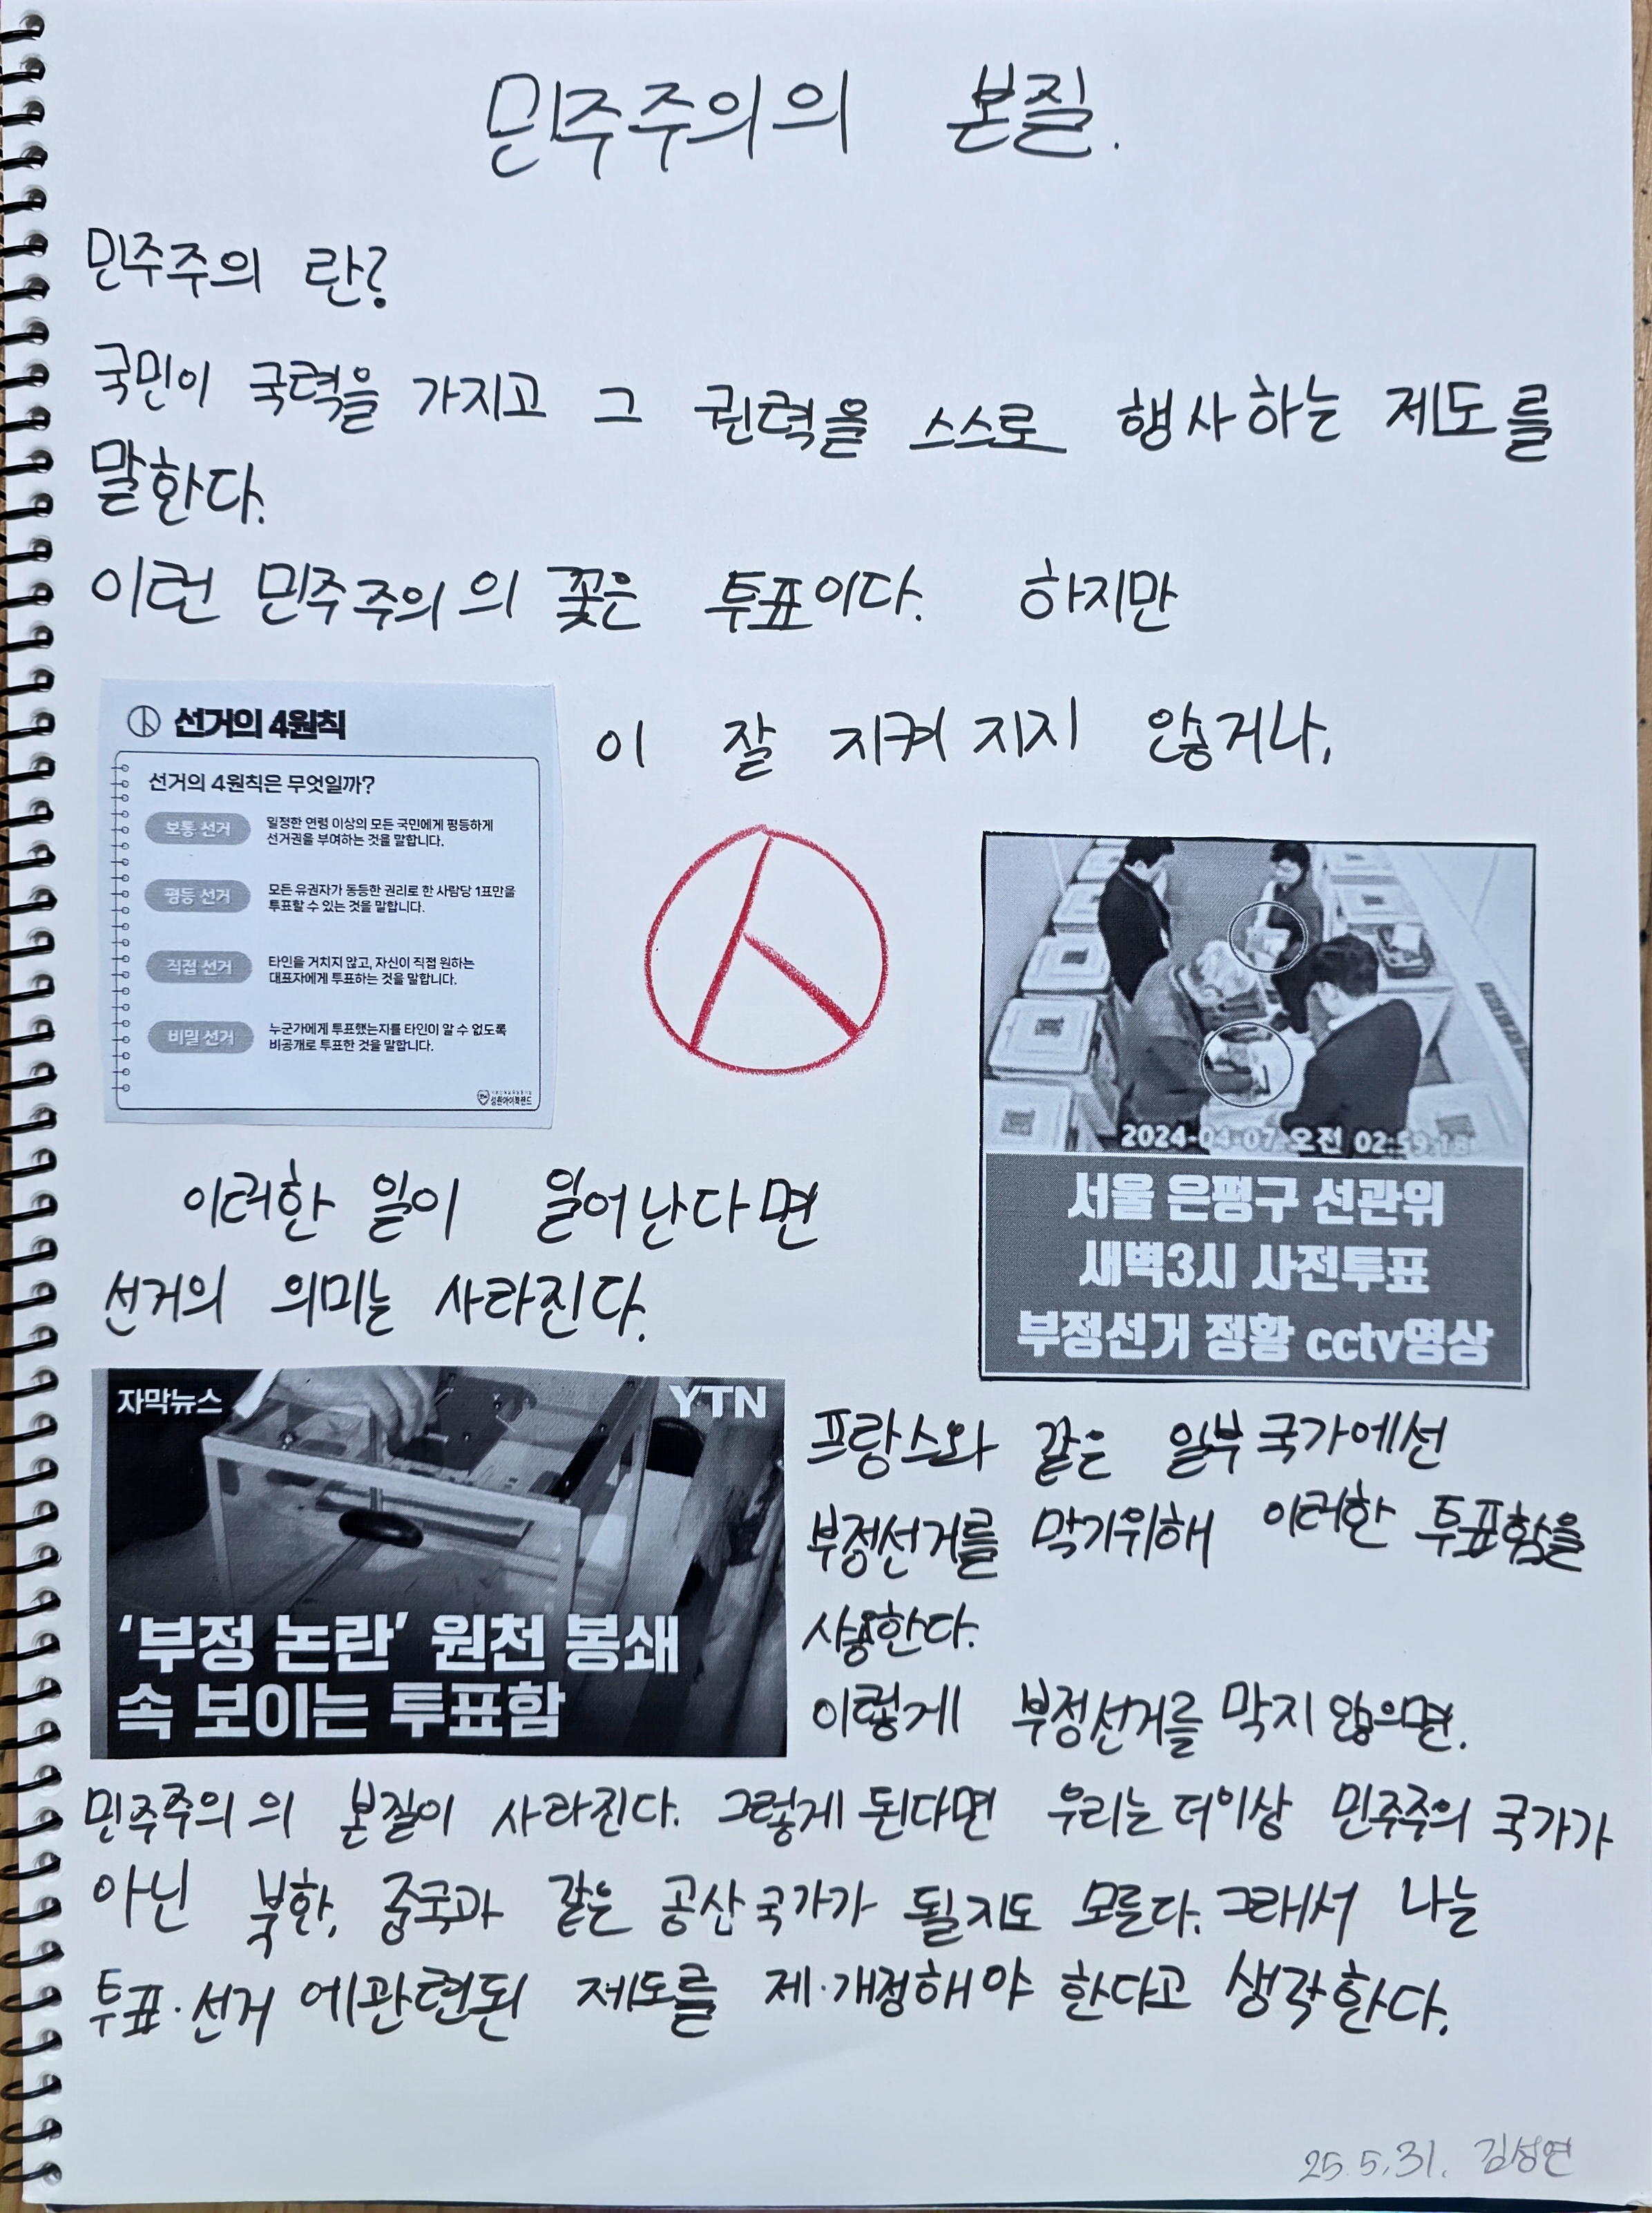 민주주의의 본질.
민주주의 란?
국민이 국력을 가지고 그 권력을 스스로 행사하는 제도를
말한다.
이런 민주주의의 꽃은 투표이다. 하지만
선거의 4원칙
선거의 4원칙은 무엇일까?
보통 선거
일정한 연령 이상의 모든 국민에게 평등하게
선거권을 부여하는 것을 말합니다.
평등 선거
모든 유권자가 동등한 권리로 한 사람당 1표만을
투표할 수 있는 것을 말합니다.
직접 선거
타인을 거치지 않고, 자신이 직접 원하는
대표자에게 투표하는 것을 말합니다.
비밀 선거
누군가에게 투표했는지를 타인이 알 수 없도록
비공개로 투표한 것을 말합니다.
이 잘 지켜지지 않거나,
2024-04-07 오전 02:59:18
서울 은평구 선관위
새벽3시 사전투표
부정선거 정황 cctv영상
이러한 일이 일어난다면
선거의 의미는 사라진다.
자막뉴스
YTN
'부정 논란' 원천 봉쇄
속 보이는 투표함
프랑스와 같은 일부국가에선
부정선거를 막기위해 이러한 투표함을
사용한다.
이렇게 부정선거를 막지 않으면.
민주주의의 본질이 사라진다. 그렇게 된다면 우리는 더이상 민주주의 국가가
아닌 북한, 중국과 같은 공산국가가 될지도 모른다. 그래서 나는
투표·선거에관련된 제도를 제·개정해야 한다고 생각한다.
25.5.31. 김성연